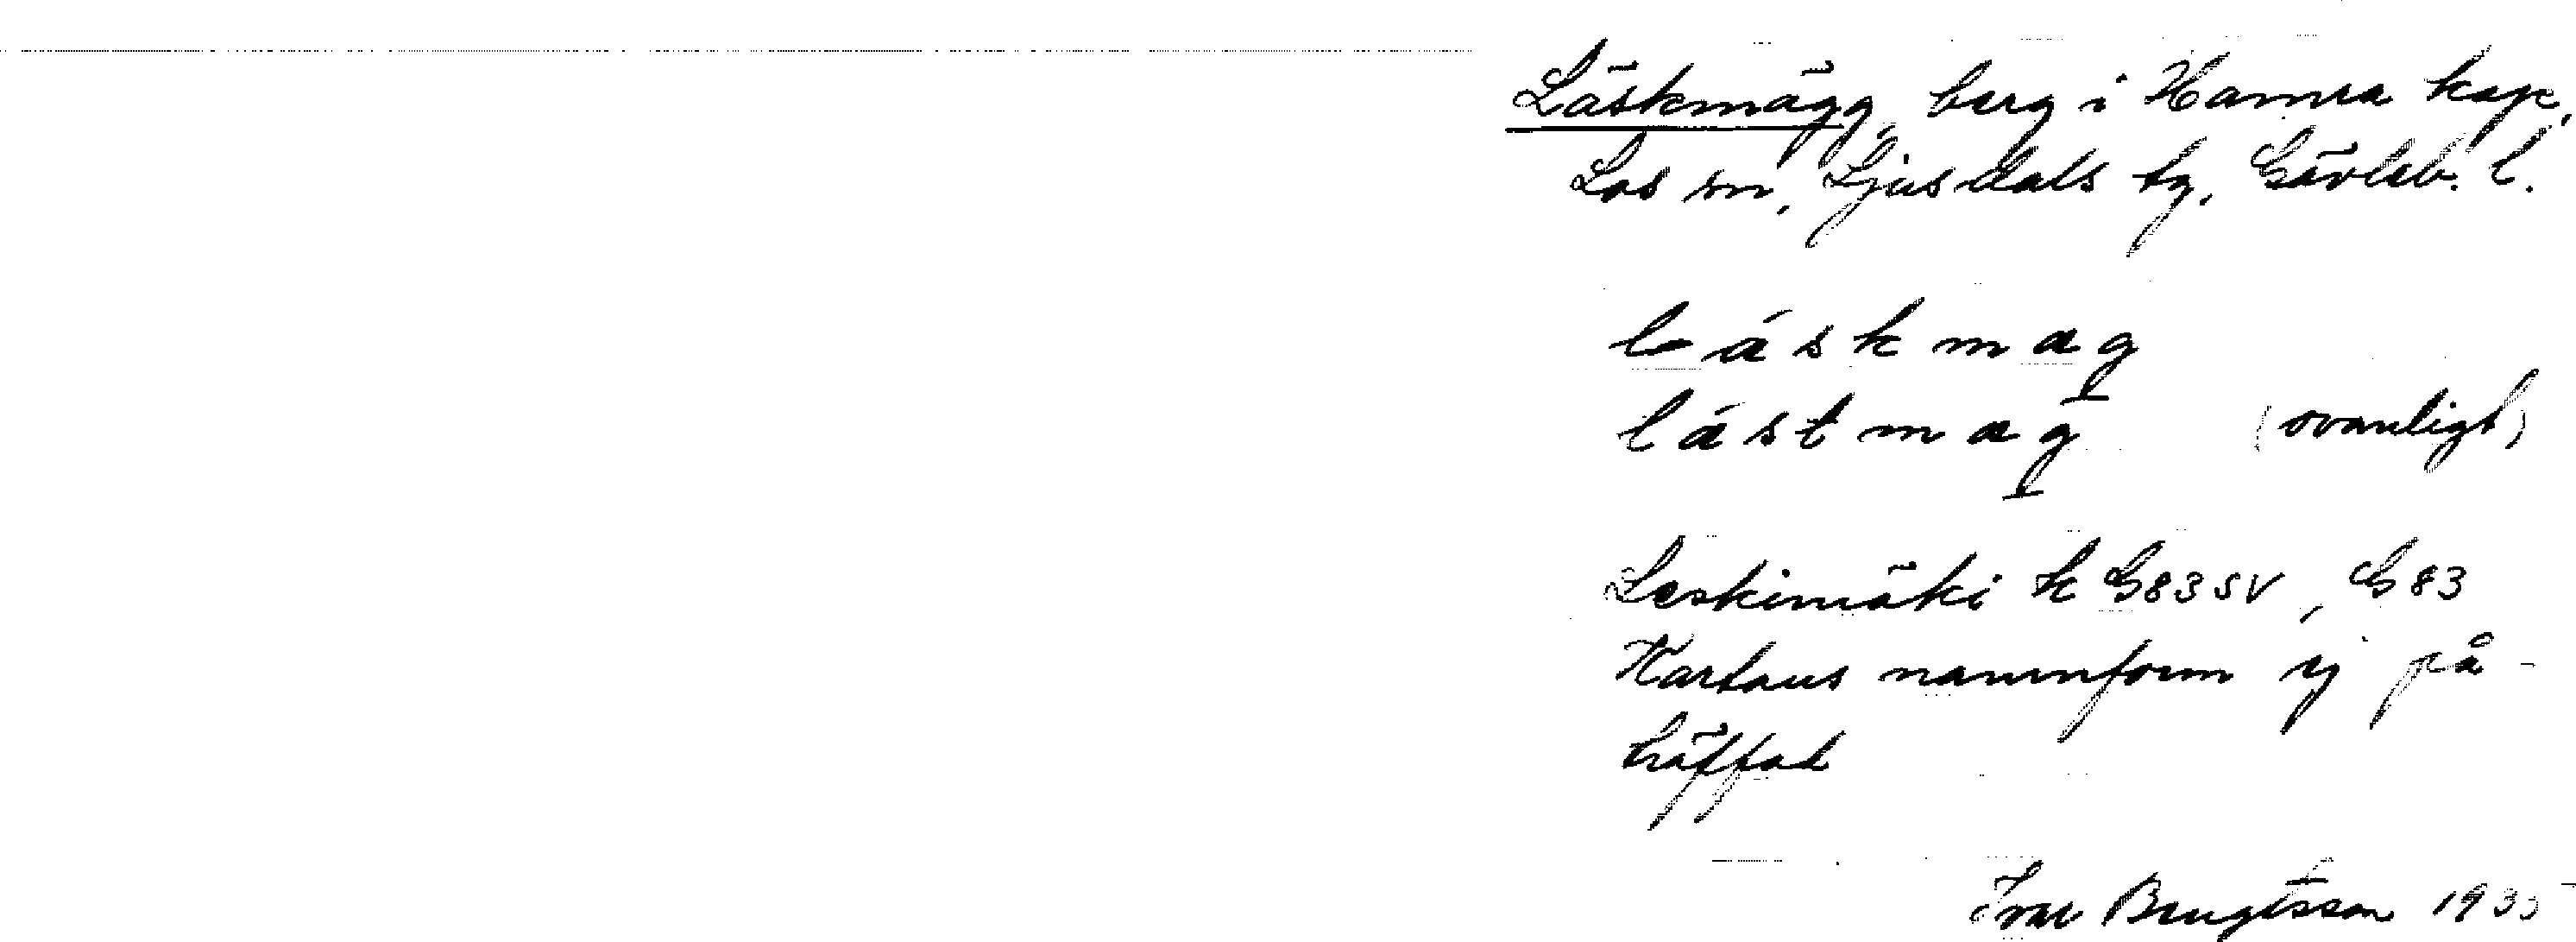 Läskmägg, berg i Hamra kap.
Los sn, Ljusdals tg. Gävleb. l.
l á s k m a g
l á s t m a g (ovanligt)
Leskimäki k G83SV, G83
Kartans namnform ej på-
träffad
Ivar Bengtsson 1935